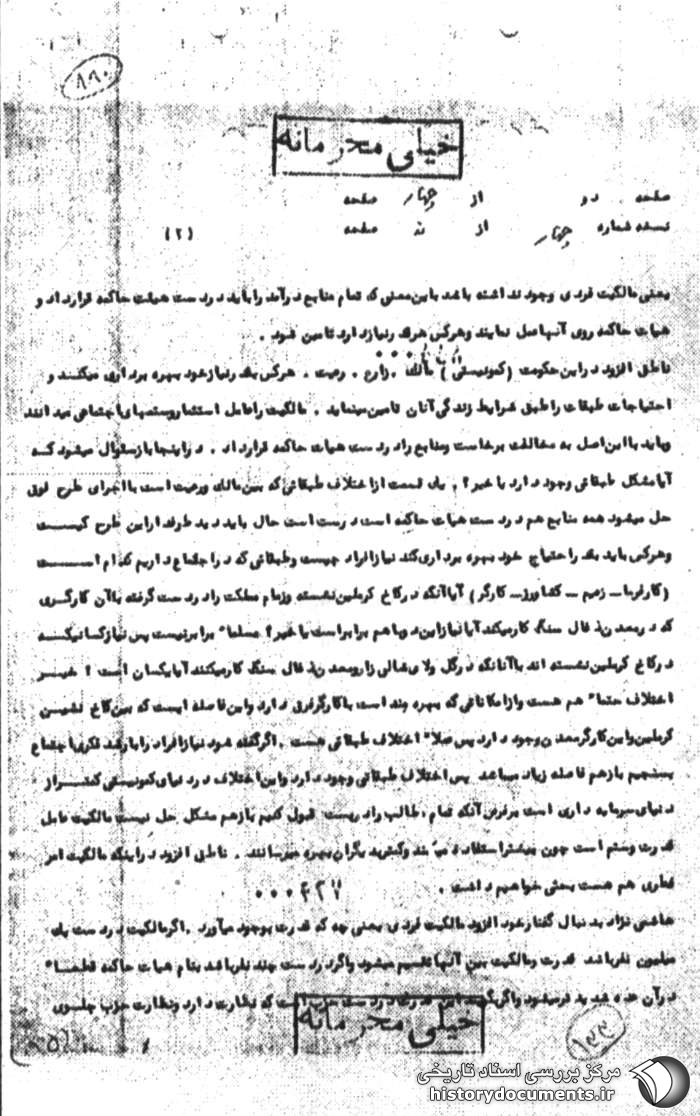 ۸۹۰
خیلی محرمانه
صفحه دو از چهار صفحه
نسخه شماره چهار از نه صفحه (۲)
یعنی مالکیت فردی وجود نداشته باشد باین معنی که تمام منابع درآمد را باید در دست هیئت حاکمه قرار داد و
هیات حاکمه روی آنها عمل نمایند و هرکس هرقدر نیاز دارد تامین شود .
ناطق افزود در این حکومت (کمونیستی) مالک . زارع . رعیت . هرکس بقدر نیاز خود بهره برداری میکند و
احتیاجات طبقات را طبق شرایط زندگی آنان تامین مینماید . مالکیت را عامل استثمار و ستمهای اجتماعی میدانند
وباید با این اصل به مخالفت برخاست ومنابع را در دست هیات حاکمه قرار داد . در اینجا باز سئوال میشود که
آیا مشکل طبقاتی وجود دارد یا خیر ؟ . یک قسمت از اختلاف طبقاتی که بین مالک ورعیت است با اجرای طرح فوق
حل میشود همه منابع هم در دست هیات حاکمه است درست است حال باید دید طرفدار این طرح کیست
وهرکس باید بقدر احتیاج خود بهره برداری کند نیاز افراد چیست وطبقاتی که در اجتماع داریم کدام است
(کارفرما - زعیم - کشاورز - کارگر) آیا آنکه در کاخ کرملین نشسته وزمام مملکت را در دست گرفته با آن کارگری
که در معدن ذغال سنگ کار میکند آیا نیاز این دو باهم برابر است یا خیر ؟ مسلما" برابر نیست پس نیاز کسانیکه
در کاخ کرملین نشسته اند با آنانکه در گل ولای شالی زار ومعدن ذغال سنگ کار میکنند آیا یکسان است ؟ خیر
اختلاف حتما" هم هست واز امکاناتی که بهره مند است با کارگر فرق دارد واین فاصله ایست که بین کاخ نشین
کرملین واین کارگر معدن وجود دارد پس اختلاف طبقاتی هست . اگر گفته شود نیاز افراد را با رشد فکری اجتماع
بسنجیم بازهم فاصله زیاد میباشد پس اختلاف طبقاتی وجود دارد واین اختلاف در دنیای کمونیستی کمتر از
دنیای سرمایه داری است برفرض آنکه تمام مطالب را دربست قبول کنیم بازهم مشکل حل نیست مالکیت عامل
قدرت وستم است چون بیشتر استفاده میکنند وکمتر بدیگران بهره میرسانند . ناطق افزود در اینکه مالکیت امر
فطری هم هست بحثی خواهیم داشت .
۰۰۰۴۲۷
هاشمی نژاد بدنبال گفتار خود افزود مالکیت فردی یعنی چه که قدرت بوجود میآورد . اگر مالکیت در دست یک
میلیون نفر باشد قدرت ومالکیت بین آنها تقسیم میشود واگر در دست چند نفر باشد بنام هیات حاکمه قطعا"
در آن عده شدیدتر میشود واگر بگویند این قدرت در دست حزب است که نظارت دارد ونظارت حزب جلوی
خیلی محرمانه
مرکز بررسی اسناد تاریخی
historydocuments.ir